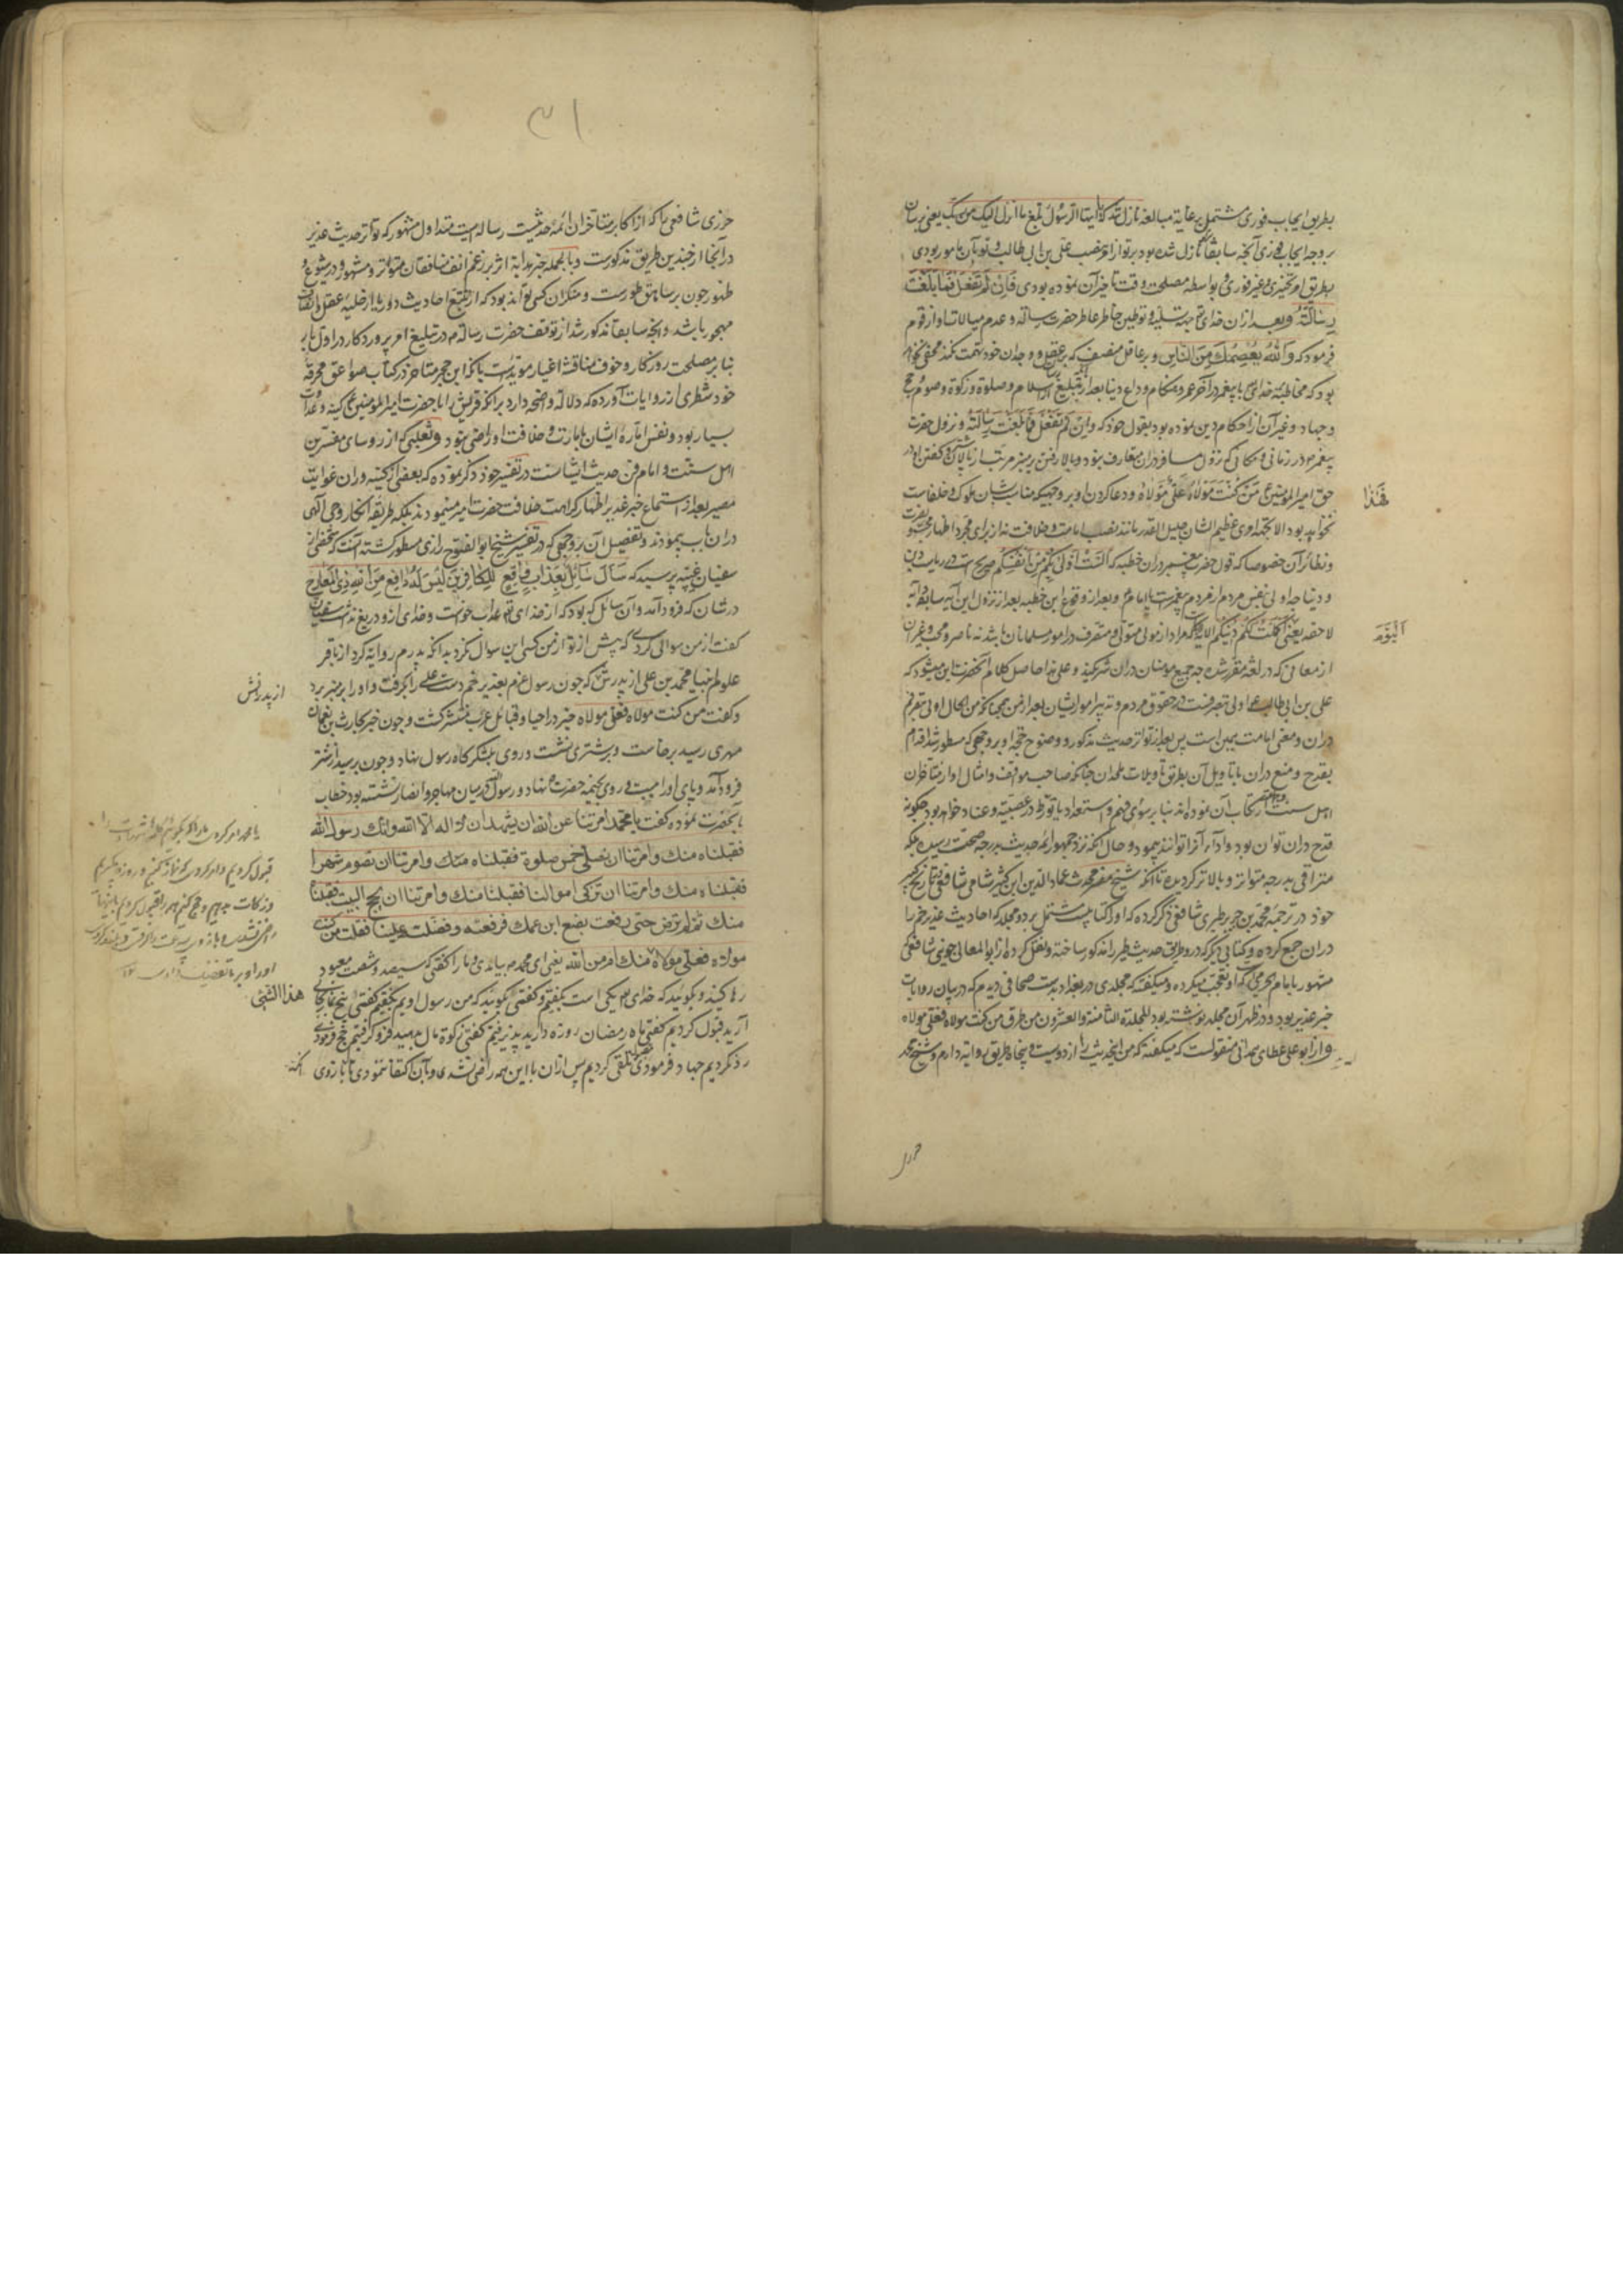 بطریق ایجاب فوری مشتمل بر غایة مبالغه نازل شد که یا ایها الرسول بلغ ما انزل الیک من ربک یعنی برسان
بر وجه ایجاب فوری آنچه سابقا نازل شده بود بر تو از امر نصب علی بن ابی طالب و تو بآن مامور بودی
بطریق امر تخییری غیر فوری و بواسطه مصلحت وقت تاخیر آن نموده بودی فَاِن لَم تَفعَل فَما بَلَّغتَ
رِسالَتَهُ و بعد از ان خدای تعالی جهت تسلیه و توطین خاطر عاطر حضرت رسالة و عدم مبالات او از قوم
فرمود که وَاللهُ یَعصِمُکَ مِنَ النّاسِ و بر عاقل منصف که بر عقل و وجدان خود تهمت نکند مخفی نخواهد
بود که مخاطبه خدای با پیغمبر در آخر عمر و هنگام وداع دنیا بعد از تبلیغ اسلام و صلوة و زکوة و صوم و حج
و جهاد و غیر آن از احکام دین نموده بود بقول خود که وان لم تفعل فما بلغت رسالته و نزول حضرت
پیغمبر در زمانی و مکانی که نزول مسافر در ان متعارف نبود و بالا رفتن بر منبر مرتب از پالان شتر و گفتن او در
حق امیر المؤمنین ع مَن کُنتُ مَولاهُ فَهذا عَلِیٌّ مَولاهُ و دعا کردن او بر وجهیکه مناسب شان ملوک و خلفاست
نخواهد بود الا بجهة امری عظیم الشان جلیل القدر مانند نصب امامت و خلافت نه از برای مجرد اظهار محبت و نصرت
و نظائر آن خصوصا که قول حضرت پیغمبر در ان خطبه که اَلَستُ اَولی بِکُم مِن اَنفُسِکُم صریح است در ریاست دین
و دنیا چه اولی بنفس مردم از مردم پیغمبر است یا امام و بعد از وقوع این خطبه بعد از نزول این آیه سابقه و آیه
لاحقه یعنی الیوم اکملت لکم دینکم الآیه که مراد از مولی متولی و متصرف در امور مسلمانان باشد نه ناصر و محب و غیر آن
از معانی که در لغة مقرر شده چه جمیع مومنان در ان شریکند و علی هذا حاصل کلام آنحضرت این میشود که
علی بن ابی طالب ع اولی بتصرفست در حقوق مردم و تدبیر امور ایشان بعد از من همچنانکه من الحال اولی بتصرفم
در ان و معنی امامت همین است پس بعد از تواتر حدیث مذکور و وضوح حجة او بر وجهی که مسطور شد اقدام
بقدح و منع در ان یا تاویل آن بطریق تاویلات ملحدان چنانکه صاحب مواقف و امثال او از متاخران
اهل سنت ارتکاب آن نموده اند بنا بر سوی فهم و استعداد یا تورط در عصبیة و عناد خواهد بود و چگونه
قدح در ان توان بود و ادّاء آنرا توانند نمود و حال آنکه نزد جمهور ائمه حدیث بدرجه صحّت رسیده بلکه
مترقی بدرجه متواتر و بالاتر گردیده تا آنکه شیخ مفسر محدث عماد الدین ابن کثیر شامی شافعی در تاریخ کبیر
خود در ترجمه محمد بن جریر طبری شافعی ذکر کرده که او را کتابیست مشتمل بر دو مجلد که احادیث غدیر خم را
در ان جمع کرده و کتابی دیگر که در و طریق حدیث طیر را مذکور ساخته و نقل کرده از ابو المعالی جوینی شافعی
مشهور بامام الحرمین که او تعجب میکرده و میگفته که مجلدی در بغداد بدست صحافی دیدم که در بیان روایات
خبر غدیر بود و در ظهر آن مجلد نوشته بود المجلدة الثامنة والعشرون من طرق من کنت مولاه فعلی مولاه
و از ابو علی عطای همدانی منقولست که میگفته که من اینحدیث را از دویست و پنجاه طریق روایة دارم و شیخ محمد
فَهٰذا
اَلیَوم
جزری
٣١
جزری شافعی که از اکابر متاخران ائمه حدیثست رساله ایست متداول مشهور که تواتر حدیث غدیر
در آنجا از چندین طریق مذکورست و بالجمله خبر هدایة اثر بر زعم انف منافقان متواتر و مشهور و در شیوع و
ظهور چون بر سامق طورست و منکر آن کسی تواند بود که از تتبع احادیث دور یا از حلیه عقل و انصاف
مهجور باشد و آنچه سابقا مذکور شد از توقف حضرت رسالة م در تبلیغ امر پروردگار در اول بار
بنا بر مصلحت روزگار و خوف منافشه اغیار مویدیست بانکه ابن حجر متاخر در کتاب صواعق محرقه
خود شطری از روایات آورده که دلالة واضحه دارد بر آنکه قریش را با حضرت امیر المؤمنین ع کینه و عداوت
بسیار بود و نفس اماره ایشان بامارت و خلافت او راضی نبود و ثعلبی که از روسای مفسرین
اهل سنت و امام فن حدیث ایشانست در تفسیر خود ذکر نموده که بعضی از کینه وران غوایت
مصیر بعد از استماع خبر غدیر اظهار کراهت خلافت حضرت امیر مینمودند بلکه طریقه انکار وحی الهی
در ان باب پیمودند و تفصیل آن بر وجهی که در تفسیر شیخ ابو الفتوح رازی مسطور گشته آنست که شخصی از
سفیان عیینه پرسید که سَاَلَ سائِلٌ بِعَذابٍ واقِعٍ لِلکافِرینَ لَیسَ لَهُ دافِعٌ مِنَ اللهِ ذِی المَعارِجِ
در شان که فرود آمد و آن سائل که بود که از خدای تعالی عذاب خواست و خدای ازو دریغ نداشت سفیان
گفت از من سوالی کردی که پیش از تو از من کسی این سوال نکرد بدانکه پدرم روایة کرد از باقر
علوم انبیا محمد بن علی از پدرش که چون رسول غزم بغدیر خم دست علی را بگرفت و او را بر منبر برد
و گفت من کنت مولاه فعلی مولاه خبر در احیا و قبائل عرب منتشر گشت و چون خبر بحارث بن نعمان
فهری رسید برخاست و بر شتری نشست و روی بلشکرگاه رسول نهاد و چون برسید از شتر
فرود آمد و پای او را ببست و روی بخیمه حضرت نهاد و رسول در میان مهاجر و انصار نشسته بود خطاب
بانحضرت نموده گفت یا محمد امرتنا عن الله ان نشهد ان لا اله الا الله وانک رسول الله
فقبلناه منک وامرتنا ان نصلی خمس صلوة فقبلناه منک وامرتنا ان نصوم شهرا
فقبلناه منک وامرتنا ان نزکی اموالنا فقبلنا منک وامرتنا ان نحج البیت فقبلنا
منک ثم لم ترض حتی رفعت بضبع ابن عمک فرفعته وفضلت علینا فقلت من کنت
مولاه فعلی مولاه منک ام من الله یعنی ای محمد م بیامدی و ما را گفتی که سیصد و شصت معبود
رها کنید و بگوئید که خدای یکی است بگفتیم و گفتی بگوئید که من رسول اویم بگفتیم گفتی پنج نماز بجای
آرید قبول کردیم گفتی ماه رمضان روزه دارید پذیرفتیم گفتی زکوة مال بدهید فرو گرفتیم حج فرمودی
رد نکردیم جهاد فرمودی تلقی کردیم پس ازان با این همه راضی نشدی و بآن اکتفا ننمودی تا بازوی
از پدرانش
قبول کردیم
هذا الشئ